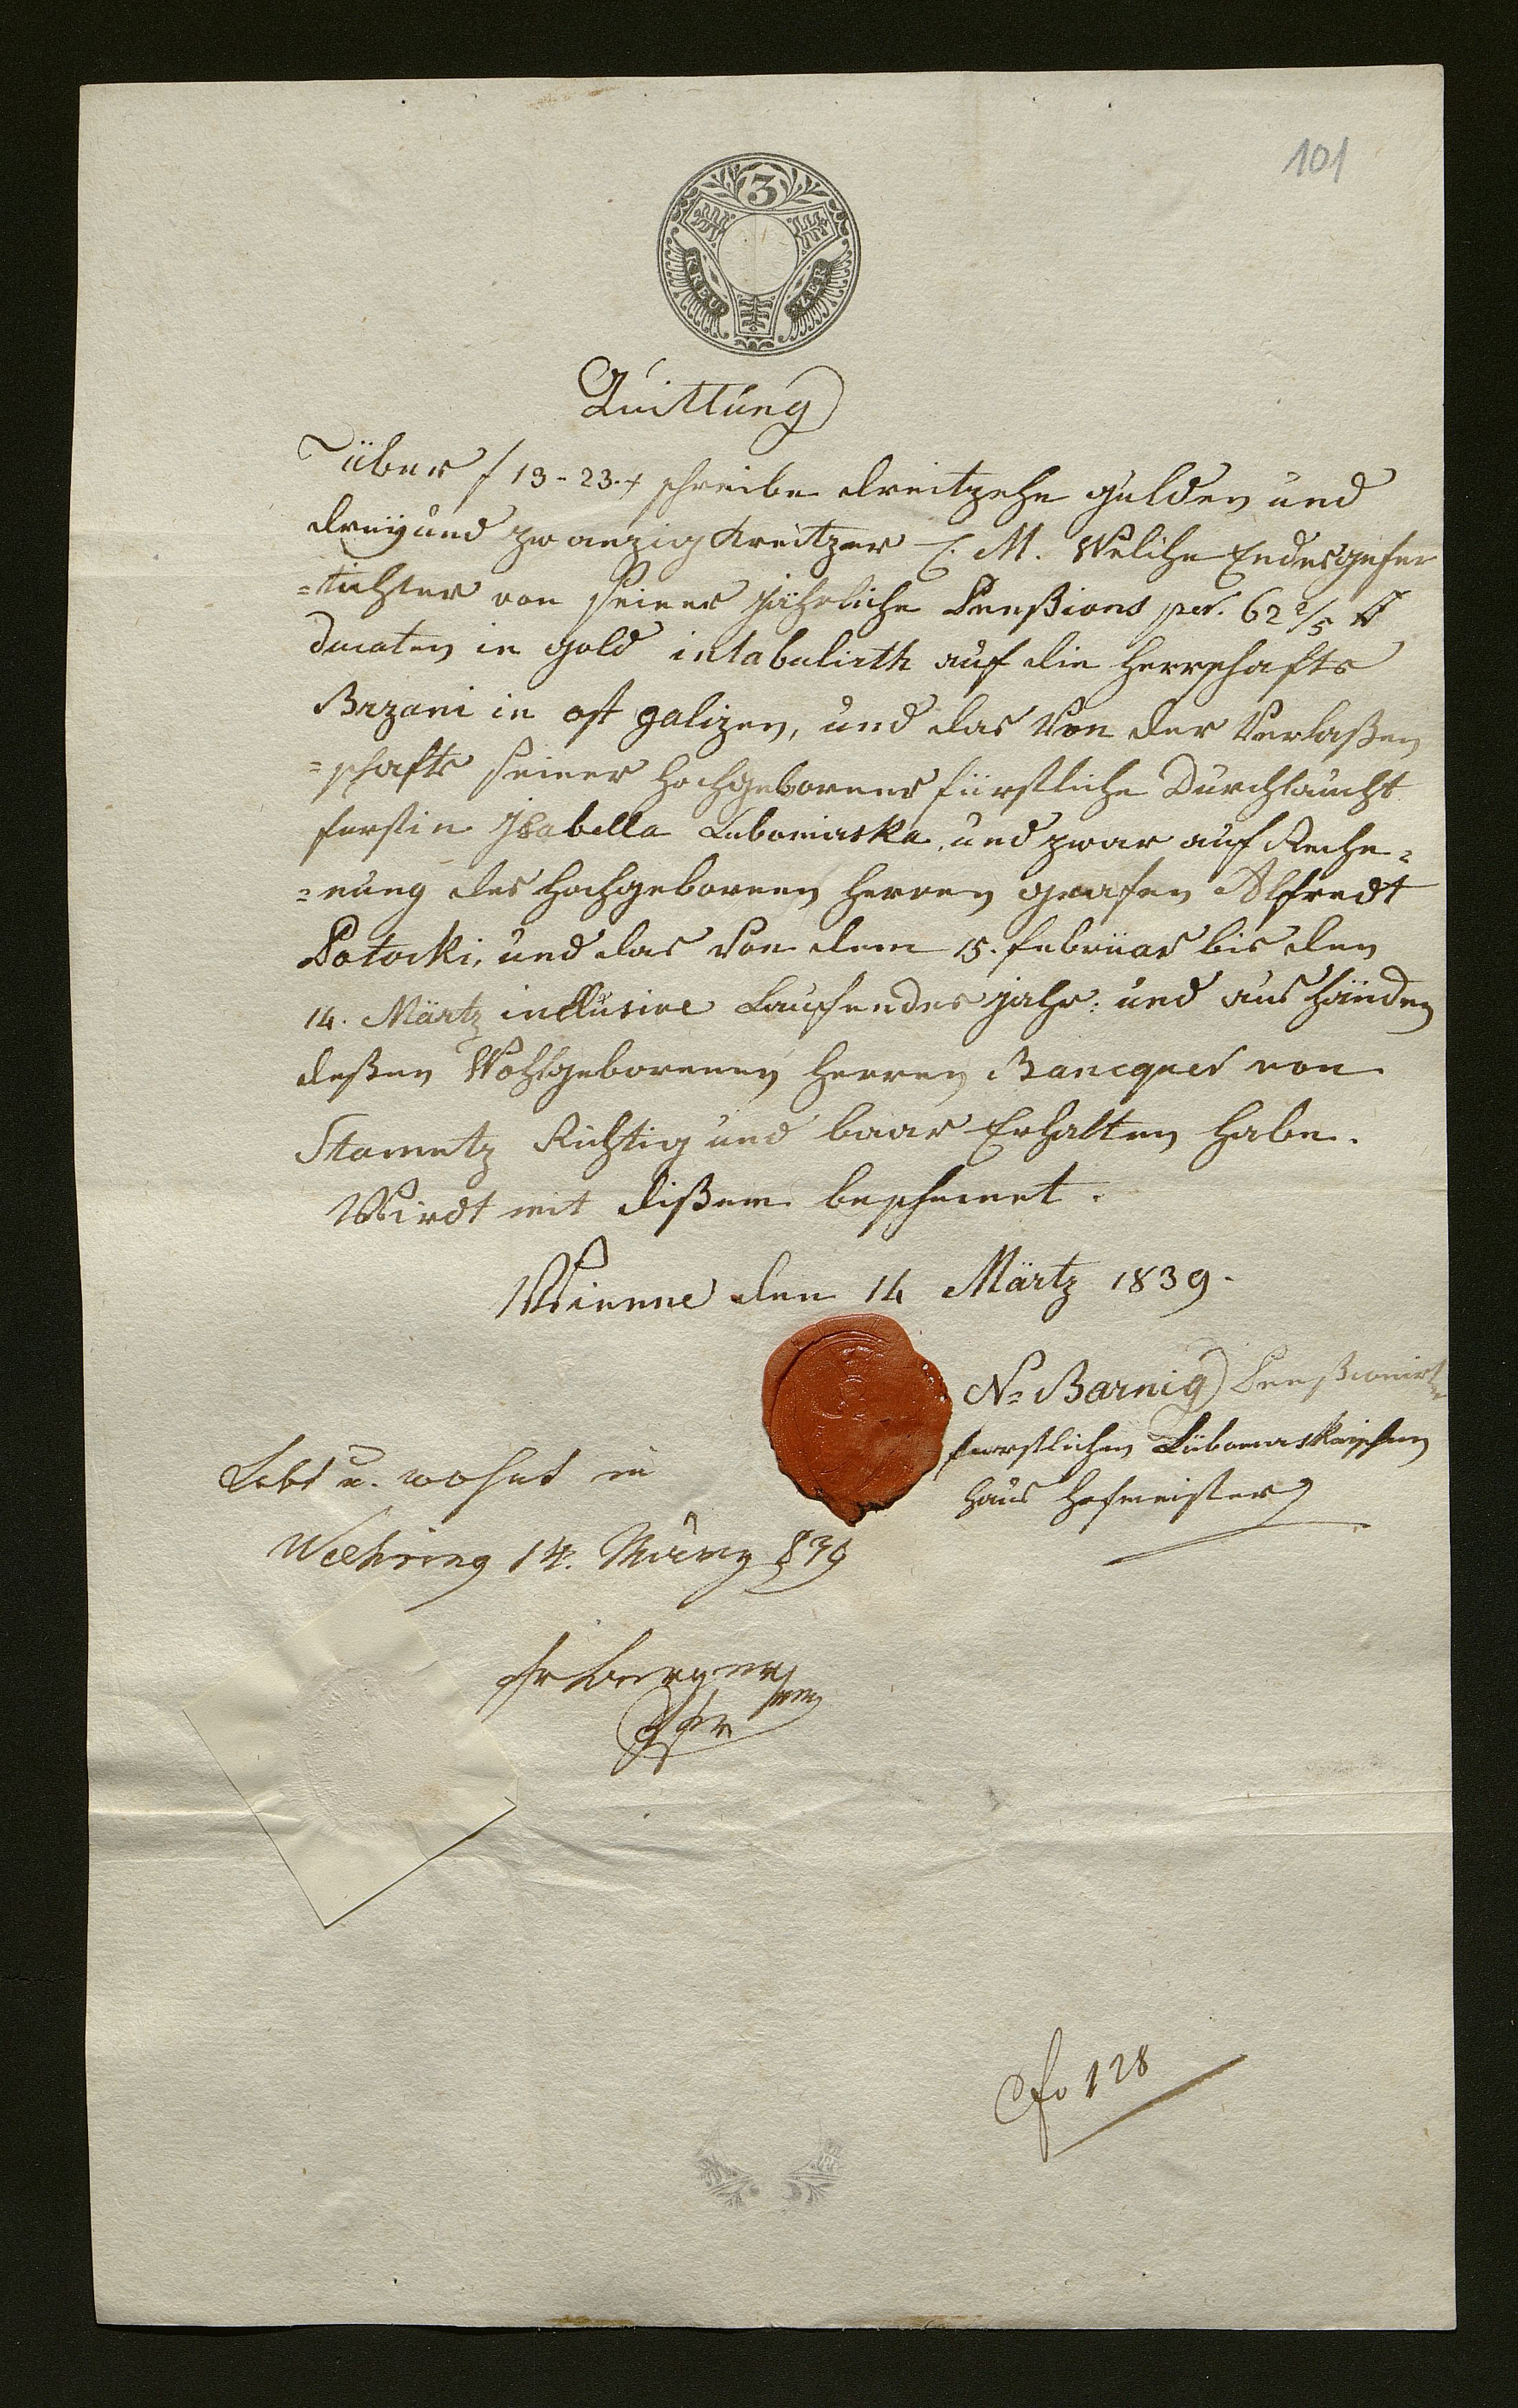 101
3
KREU ZER
Quittung
über f 13-23.x schreibe dreitzehe gulden und
dreyund zwanzig Kreitzer C. M. Welche Endesgefer
=tichter von seiner jährliche Penßions per. 62 2/5 #
Ducaten in gold intabulirth auf die Herrschafts
Brzani in ost galizen, und das Von der Verlaßen
=schafts seiner Hochgeborner fürstliche Durchlaucht
furstin Jsabella Lubomirska, und zwar auf Reche=
=nung des Hochgebornen Herren grafen Alfredt
Potocki, und das von dem 15. februar bis den
14. Märtz inclusive Laufendes jahr: und aus Händen
deßen Wohlgebornen Herren Bancquer von
Stametz Richtig und baar Erhalten habe.
Wirdt mit dißem bescheinet.
Wienne den 14 Märtz 1839.
N= Barnig Penßionirte
fuorstlichen Lubomirskaischen
Haus Hofmeister
Lebt u. wohnt in
Waehring 14. März 839
Berger
Pfr
fo 128